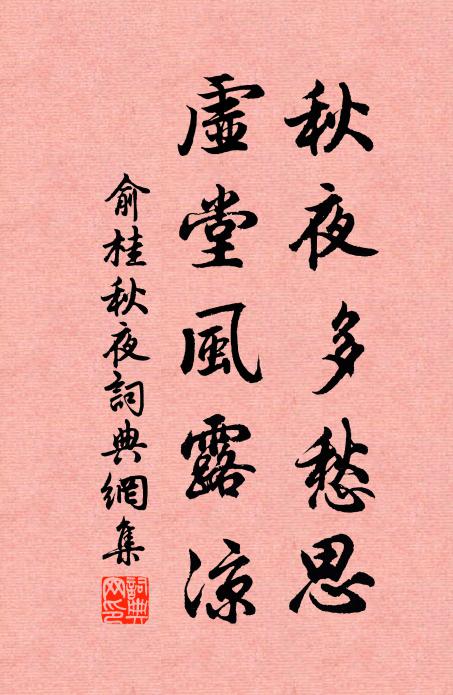 秋夜多愁思
虛堂風露涼
俞桂秋夜詞典網集
詞典網印